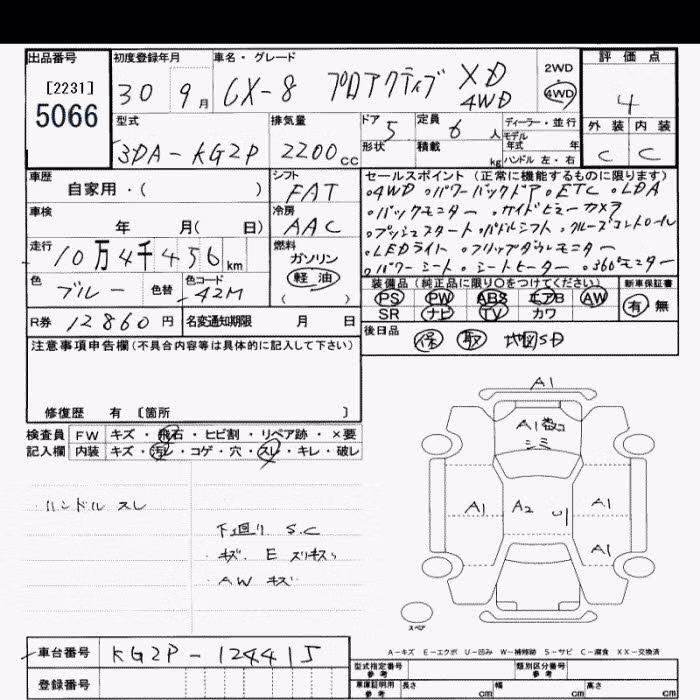 出品番号 初度登録年月 車名・グレード 評価点
[2231]
5066
30 9月 CX-8 プロアクティブ XD 4WD 2WD・4WD 4
型式 排気量 ドア 5 定員 6人 ディーラー・並行 外装 内装
3DA-KG2P 2200cc 形状 積載 kg モデル年式 年 ハンドル 左・右 C C
車歴 シフト セールスポイント(正常に機能するものに限ります)
自家用・( ) FAT ・4WD ・パワーバックドア ・ETC ・LDA
車検 冷房 ・バックモニター ・サイドビューカメラ
年 月( 日) AAC ・プッシュスタート ・パドルシフト ・クルーズコントロール
走行 燃料 ・LEDライト ・フリップダウンモニター
10万4千456km ガソリン ・パワーシート ・シートヒーター ・360°モニター
色 ブルー 色替 色コード 42M 軽油 ( )
装備品(純正品に限り○をつけてください) 新車保証書
PS PW ABS エアB AW 有 無
SR ナビ TV カワ
R券 12860円 名変通知期限 月 日 後日品 保 取 地図SD
注意事項申告欄(不具合内容等は具体的に記入して下さい)
修復歴 有 〔箇所 〕
検査員 FW キズ・飛石・ヒビ割・リペア跡・×要
記入欄 内装 キズ・汚レ・コゲ・穴・スレ・キレ・破レ
ハンドル スレ
下廻り S.C
・キズ E スリキズ
・AW キズ
A1
A1
A1 A2 A1
A1
スペア
A-キズ E-エクボ U-凹み W-補修跡 S-サビ C-腐食 XX-交換済
車台番号 KG2P-124415
登録番号
型式指定番号 参考 類別区分番号 参考
車庫証明用 参考 長さ cm 幅 cm 高さ cm